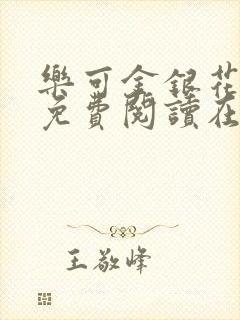 樂可金銀花
免費閱讀在
王敬峰